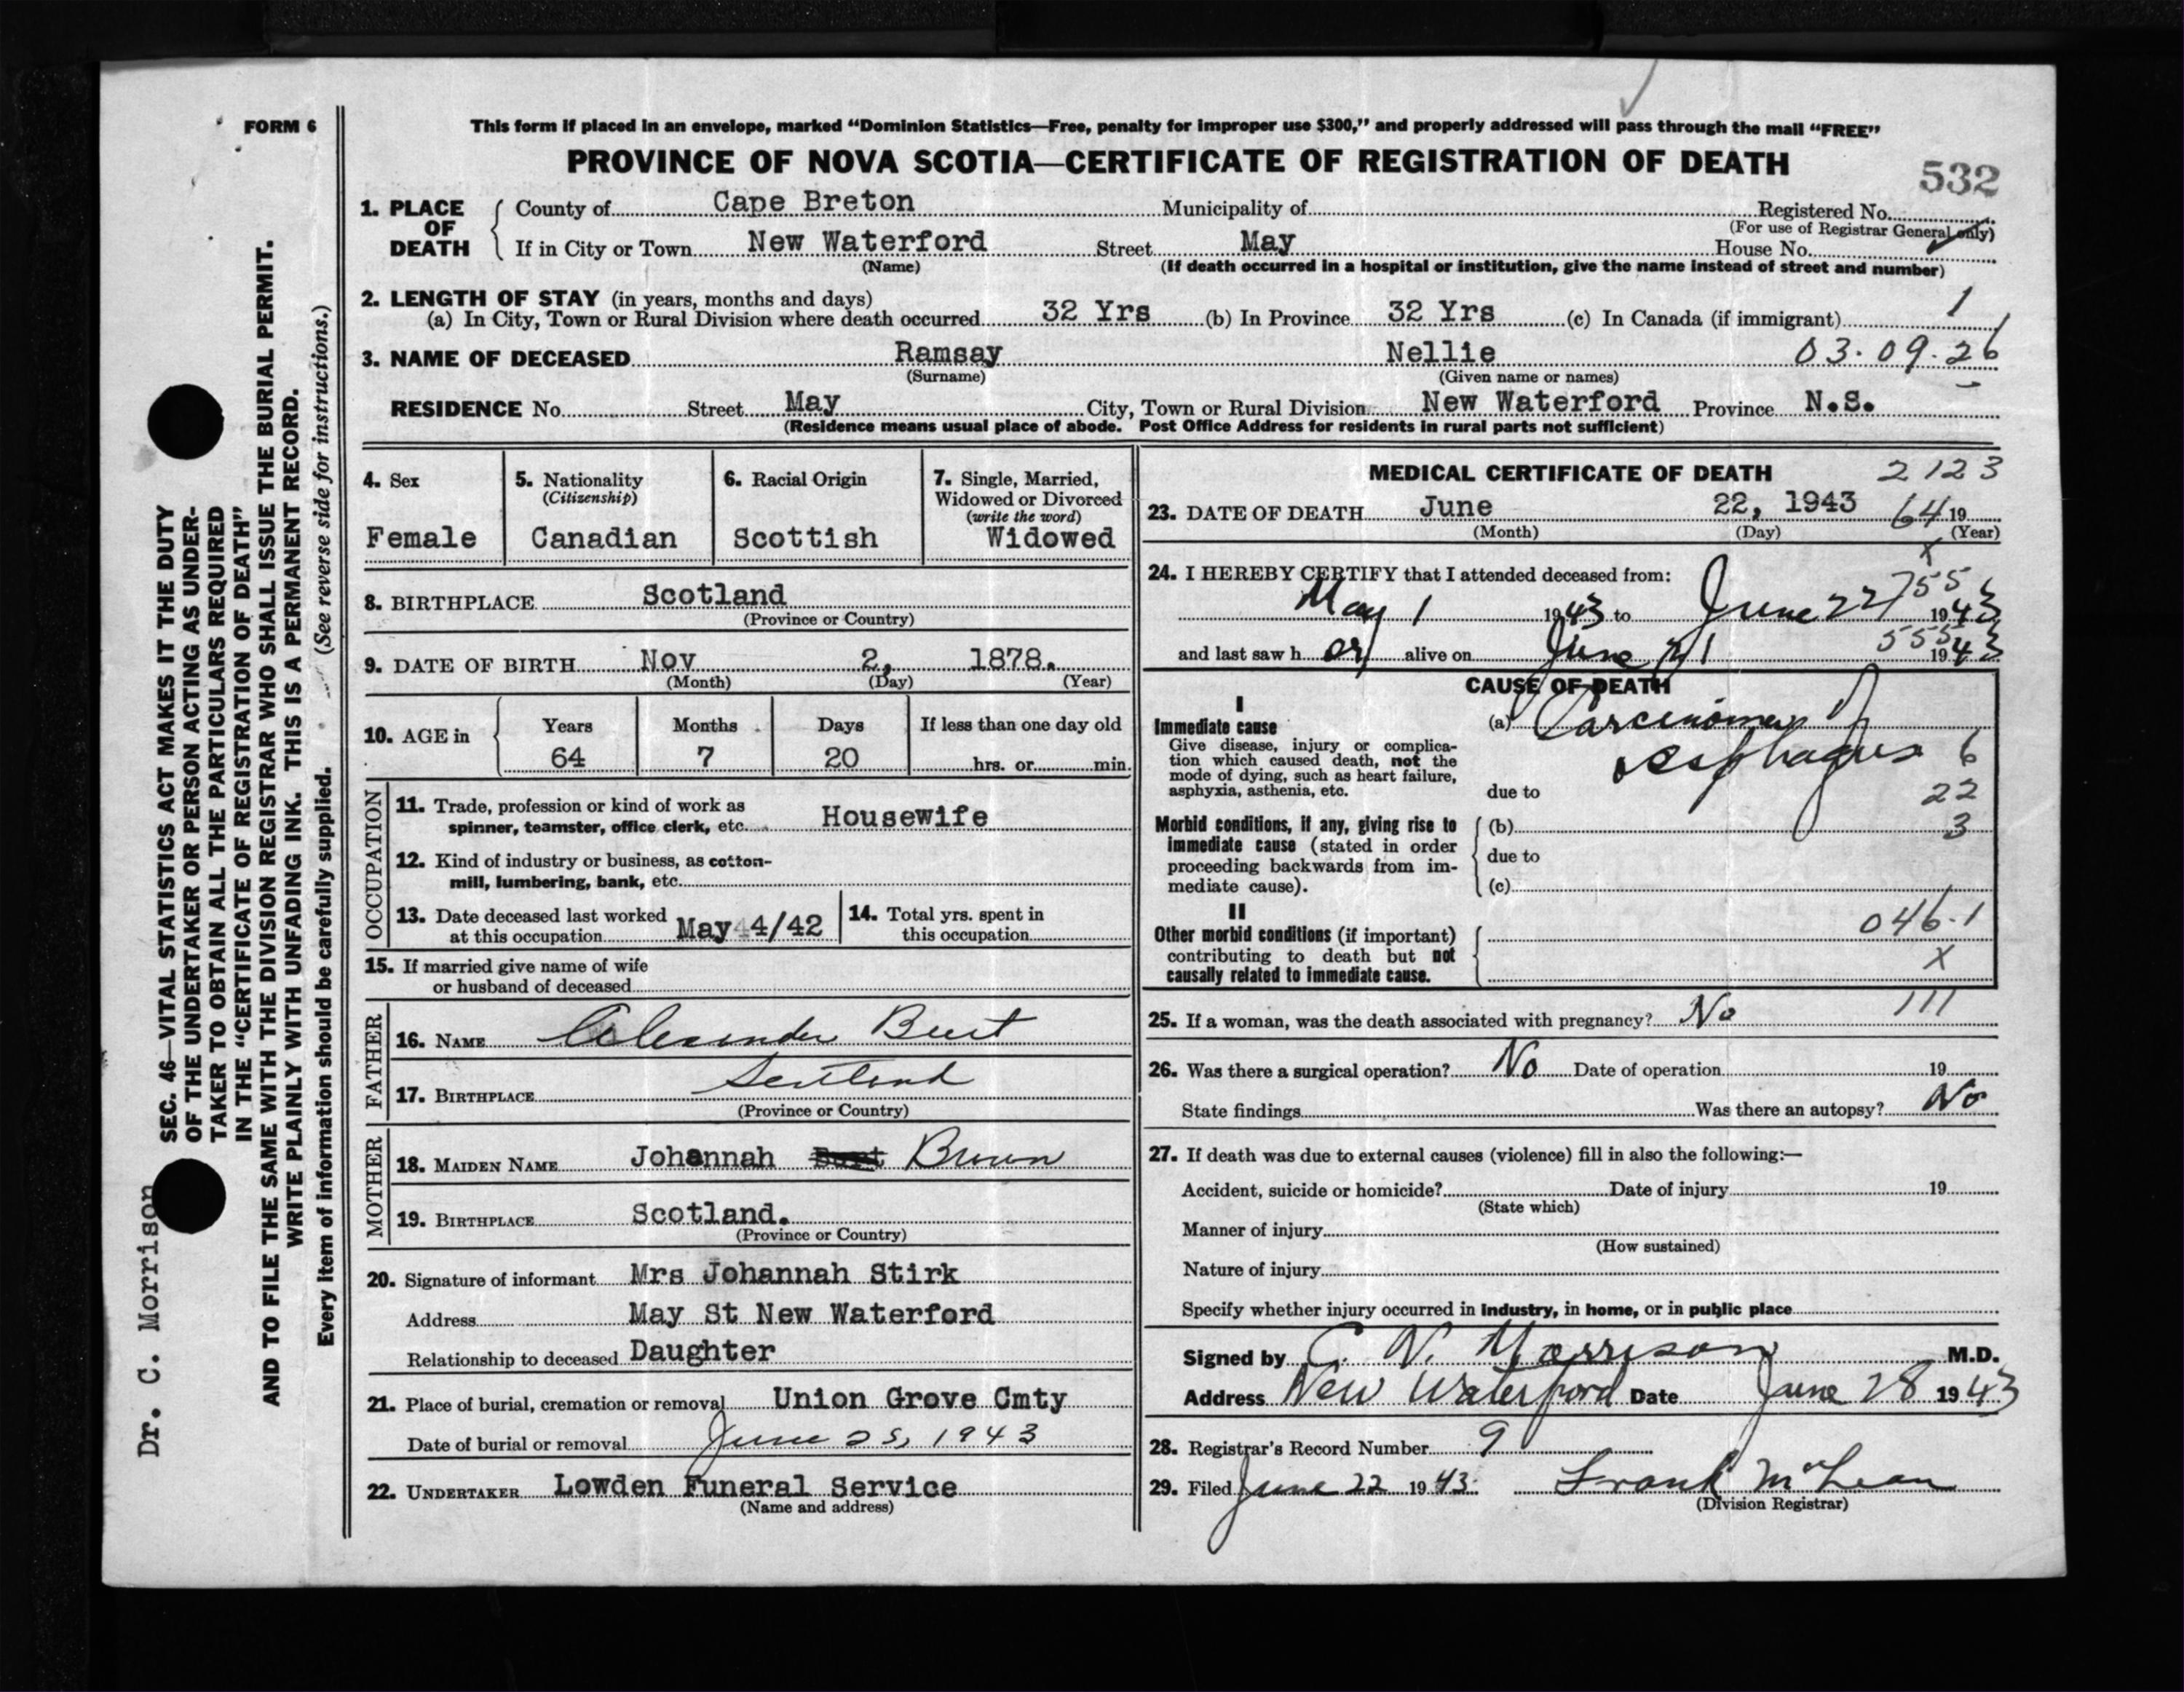 FORM 6
This form if placed in an envelope, marked “Dominion Statistics—Free, penalty for improper use $300,” and properly addressed will pass through the mail “FREE”
PROVINCE OF NOVA SCOTIA—CERTIFICATE OF REGISTRATION OF DEATH
532
1. PLACE OF DEATH
County of Cape Breton Municipality of Registered No.
(For use of Registrar General only)
If in City or Town New Waterford Street May House No.
(Name) (If death occurred in a hospital or institution, give the name instead of street and number)
2. LENGTH OF STAY (in years, months and days) 1
(a) In City, Town or Rural Division where death occurred 32 Yrs (b) In Province 32 Yrs (c) In Canada (if immigrant)
3. NAME OF DECEASED Ramsay Nellie 03.09.26
(Surname) (Given name or names)
RESIDENCE No. Street May City, Town or Rural Division New Waterford Province N.S.
(Residence means usual place of abode. Post Office Address for residents in rural parts not sufficient)
4. Sex
Female
5. Nationality
(Citizenship)
Canadian
6. Racial Origin
Scottish
7. Single, Married,
Widowed or Divorced
(write the word)
Widowed
8. BIRTHPLACE Scotland
(Province or Country)
9. DATE OF BIRTH Nov 2, 1878.
(Month) (Day) (Year)
10. AGE in Years Months Days If less than one day old
64 7 20 hrs. or min.
OCCUPATION
11. Trade, profession or kind of work as
spinner, teamster, office clerk, etc. Housewife
12. Kind of industry or business, as cotton-
mill, lumbering, bank, etc.
13. Date deceased last worked
at this occupation May 4/42
14. Total yrs. spent in
this occupation
15. If married give name of wife
or husband of deceased
FATHER
16. NAME Alexander Burt
17. BIRTHPLACE Scotland
(Province or Country)
MOTHER
18. MAIDEN NAME Johannah Burt Brown
19. BIRTHPLACE Scotland.
(Province or Country)
20. Signature of informant Mrs Johannah Stirk
Address May St New Waterford
Relationship to deceased Daughter
21. Place of burial, cremation or removal Union Grove Cmty
Date of burial or removal June 25, 1943
22. UNDERTAKER Lowden Funeral Service
(Name and address)
MEDICAL CERTIFICATE OF DEATH 2123
23. DATE OF DEATH June 22, 1943 64 19
(Month) (Day) (Year)
x
24. I HEREBY CERTIFY that I attended deceased from:
55
May 1 1943 to June 22 1943
555
and last saw h er alive on June 21 1943
CAUSE OF DEATH
I
Immediate cause
Give disease, injury or complica-
tion which caused death, not the
mode of dying, such as heart failure,
asphyxia, asthenia, etc.
(a) Carcinoma of
oesophagus 6
due to 22
Morbid conditions, if any, giving rise to
immediate cause (stated in order
proceeding backwards from im-
mediate cause).
(b) 3
due to
(c)
II
Other morbid conditions (if important)
contributing to death but not
causally related to immediate cause.
046.1
X
25. If a woman, was the death associated with pregnancy? No 111
26. Was there a surgical operation? No Date of operation 19
State findings Was there an autopsy? No
27. If death was due to external causes (violence) fill in also the following:—
Accident, suicide or homicide? Date of injury 19
(State which)
Manner of injury
(How sustained)
Nature of injury
Specify whether injury occurred in industry, in home, or in public place
Signed by C. N. Morrison M.D.
Address New Waterford Date June 28 1943
28. Registrar's Record Number 9
29. Filed June 22 1943. Frank McLean
(Division Registrar)
Dr. C. Morrison
SEC. 46—VITAL STATISTICS ACT MAKES IT THE DUTY
OF THE UNDERTAKER OR PERSON ACTING AS UNDER-
TAKER TO OBTAIN ALL THE PARTICULARS REQUIRED
IN THE “CERTIFICATE OF REGISTRATION OF DEATH”
AND TO FILE THE SAME WITH THE DIVISION REGISTRAR WHO SHALL ISSUE THE BURIAL PERMIT.
WRITE PLAINLY WITH UNFADING INK. THIS IS A PERMANENT RECORD.
Every item of information should be carefully supplied. (See reverse side for instructions.)